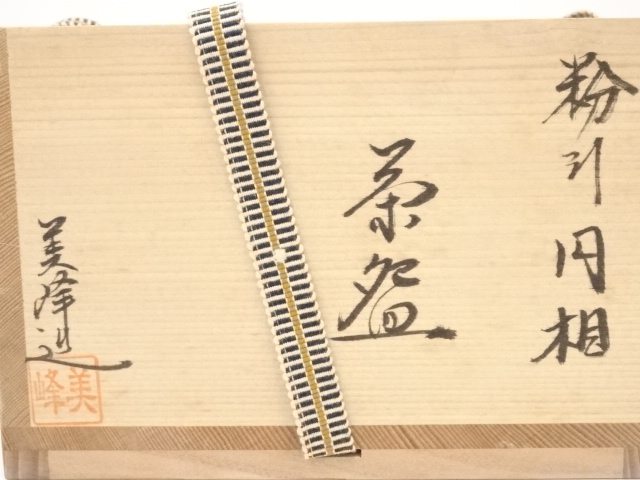 粉引円相
茶盌
美峰造
美峰